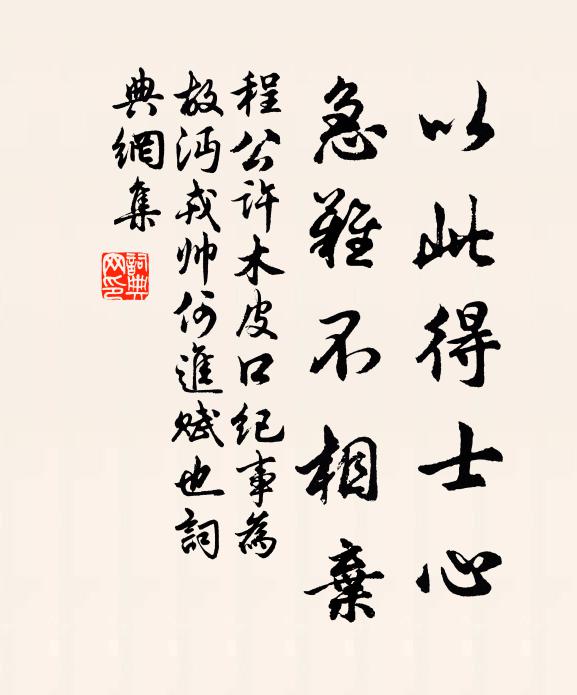 以此得士心
急难不相棄
程公许木皮口纪事為
故沔戎帅何進赋也詞
典網集
詞典網印